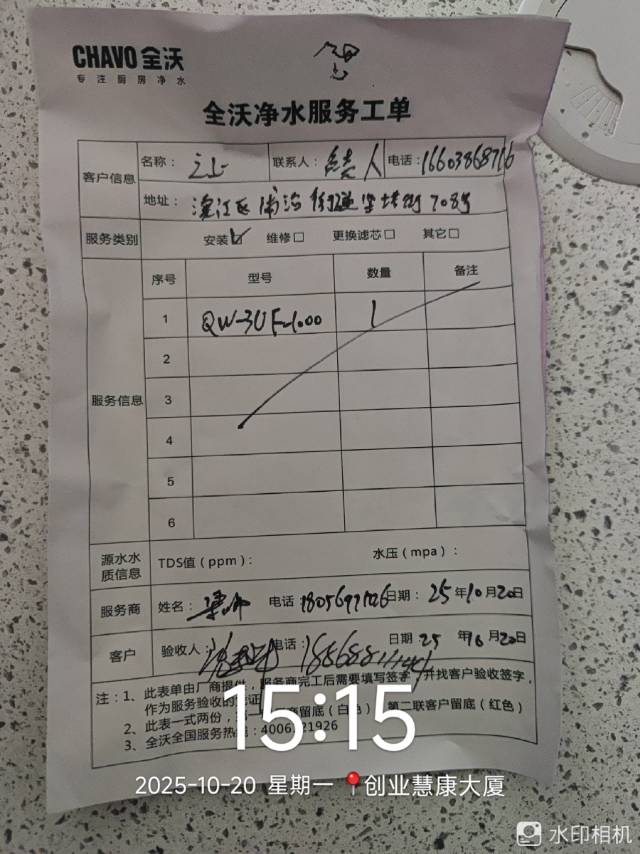 CHAVO全沃
专注厨房净水
全沃净水服务工单
客户信息
名称： 联系人： 人 电话：16603868716
地址：滨江区浦沿街道 708号
服务类别 安装☑ 维修□ 更换滤芯□ 其它□
服务信息
序号 型号 数量 备注
1 QW-3UF-1000 1
2
3
4
5
6
源水水质信息 TDS值（ppm）： 水压（mpa）：
服务商 姓名： 电话 日期：25年10月20日
客户 验收人： 电话： 日期 25年10月20日
注：1、此表单由厂商提供，服务商完工后需要填写签字，并找客户验收签字，
作为服务验收的凭证
2、此表一式两份， 商留底（白色） 第二联客户留底（红色）
3、全沃全国服务热线：4006 21926
15:15
2025-10-20 星期一 📍创业慧康大厦
水印相机